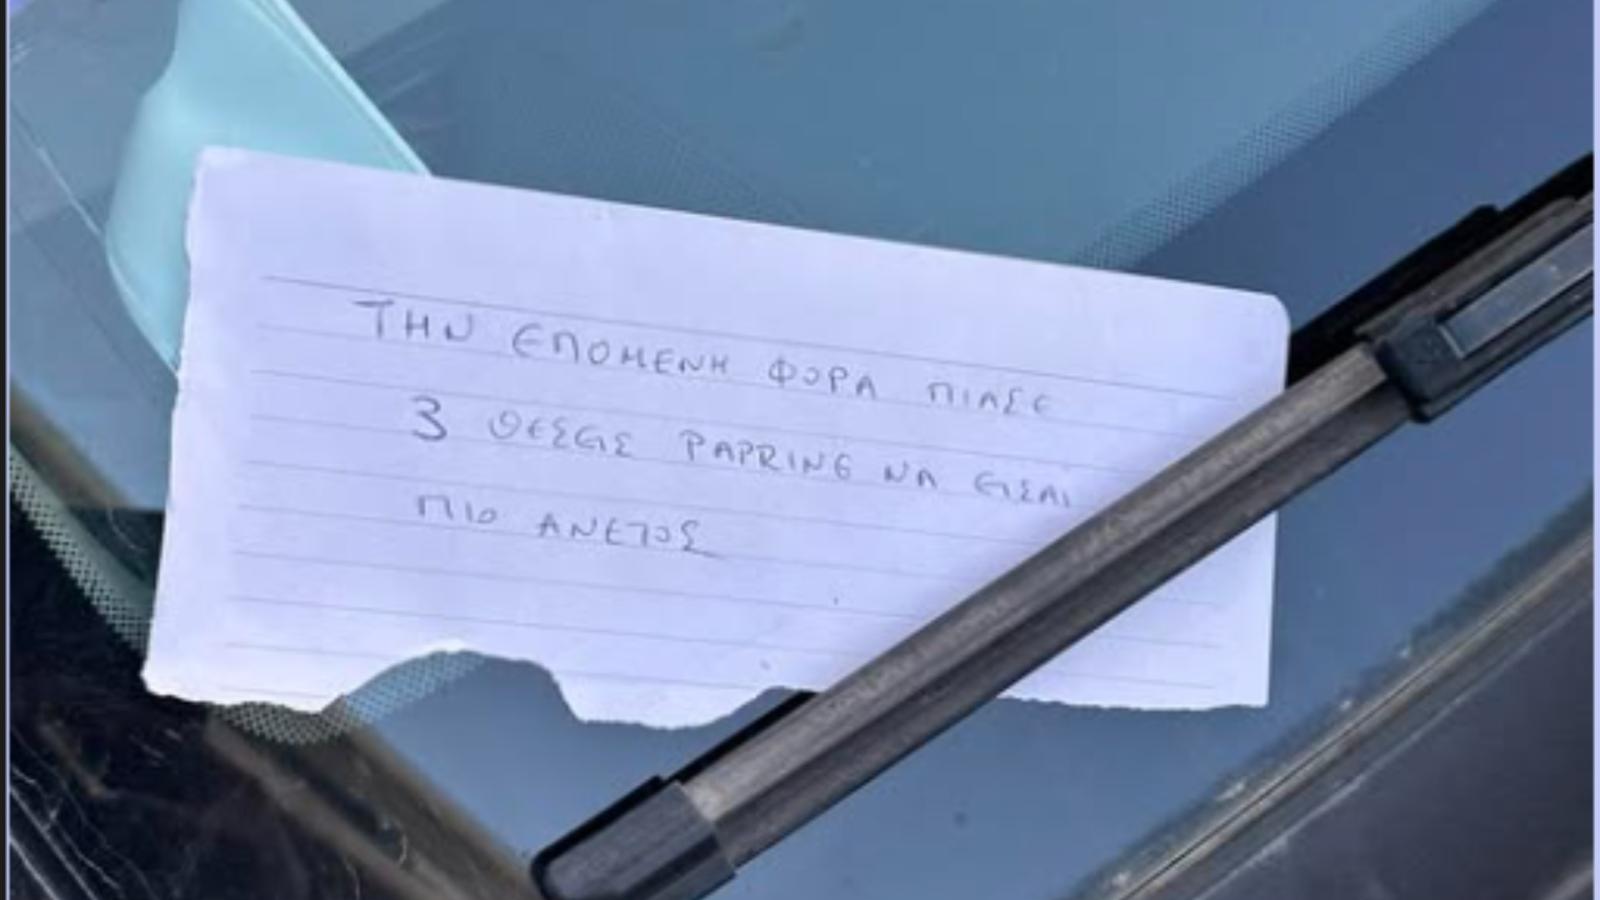 ΤΗΝ ΕΠΟΜΕΝΗ ΦΟΡΑ ΠΙΑΣΕ
3 ΘΕΣΕΙΣ PAPRING ΝΑ ΕΙΣΑΙ
ΠΙΟ ΑΝΕΤΟΣ